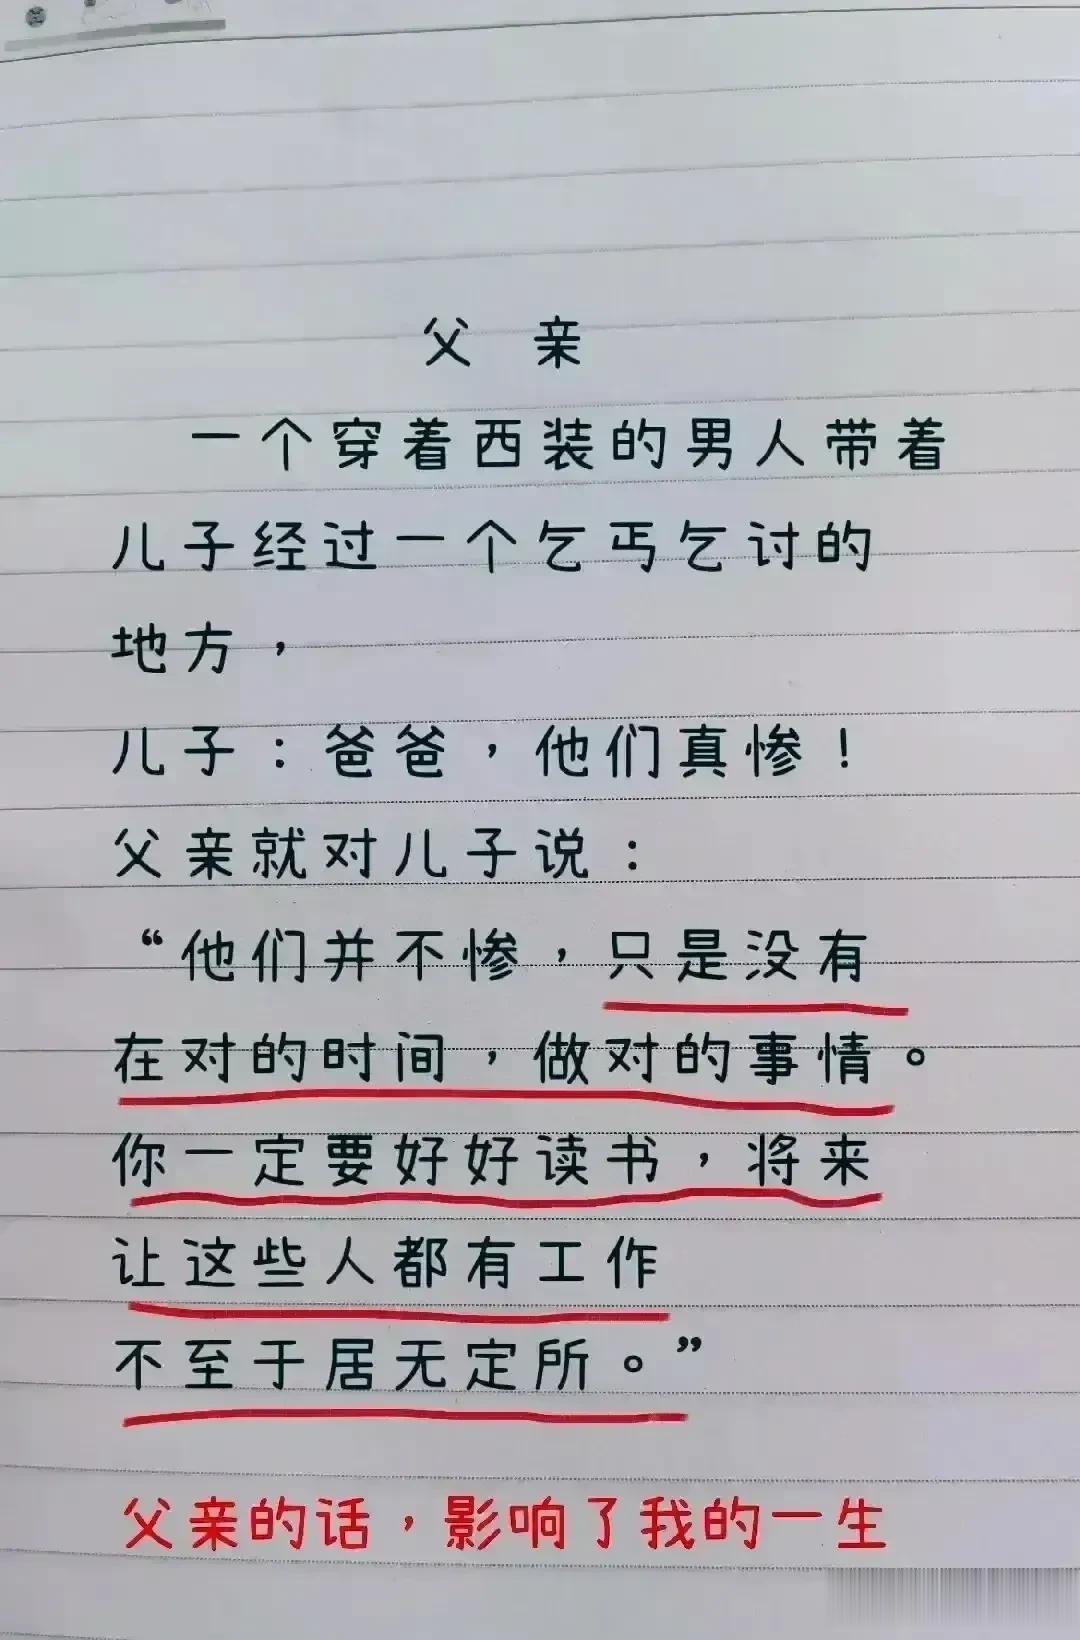 父 亲
一个穿着西装的男人带着
儿子经过一个乞丐乞讨的
地方，
儿子：爸爸，他们真惨！
父亲就对儿子说：
“他们并不惨，只是没有
在对的时间，做对的事情。
你一定要好好读书，将来
让这些人都有工作
不至于居无定所。”
父亲的话，影响了我的一生